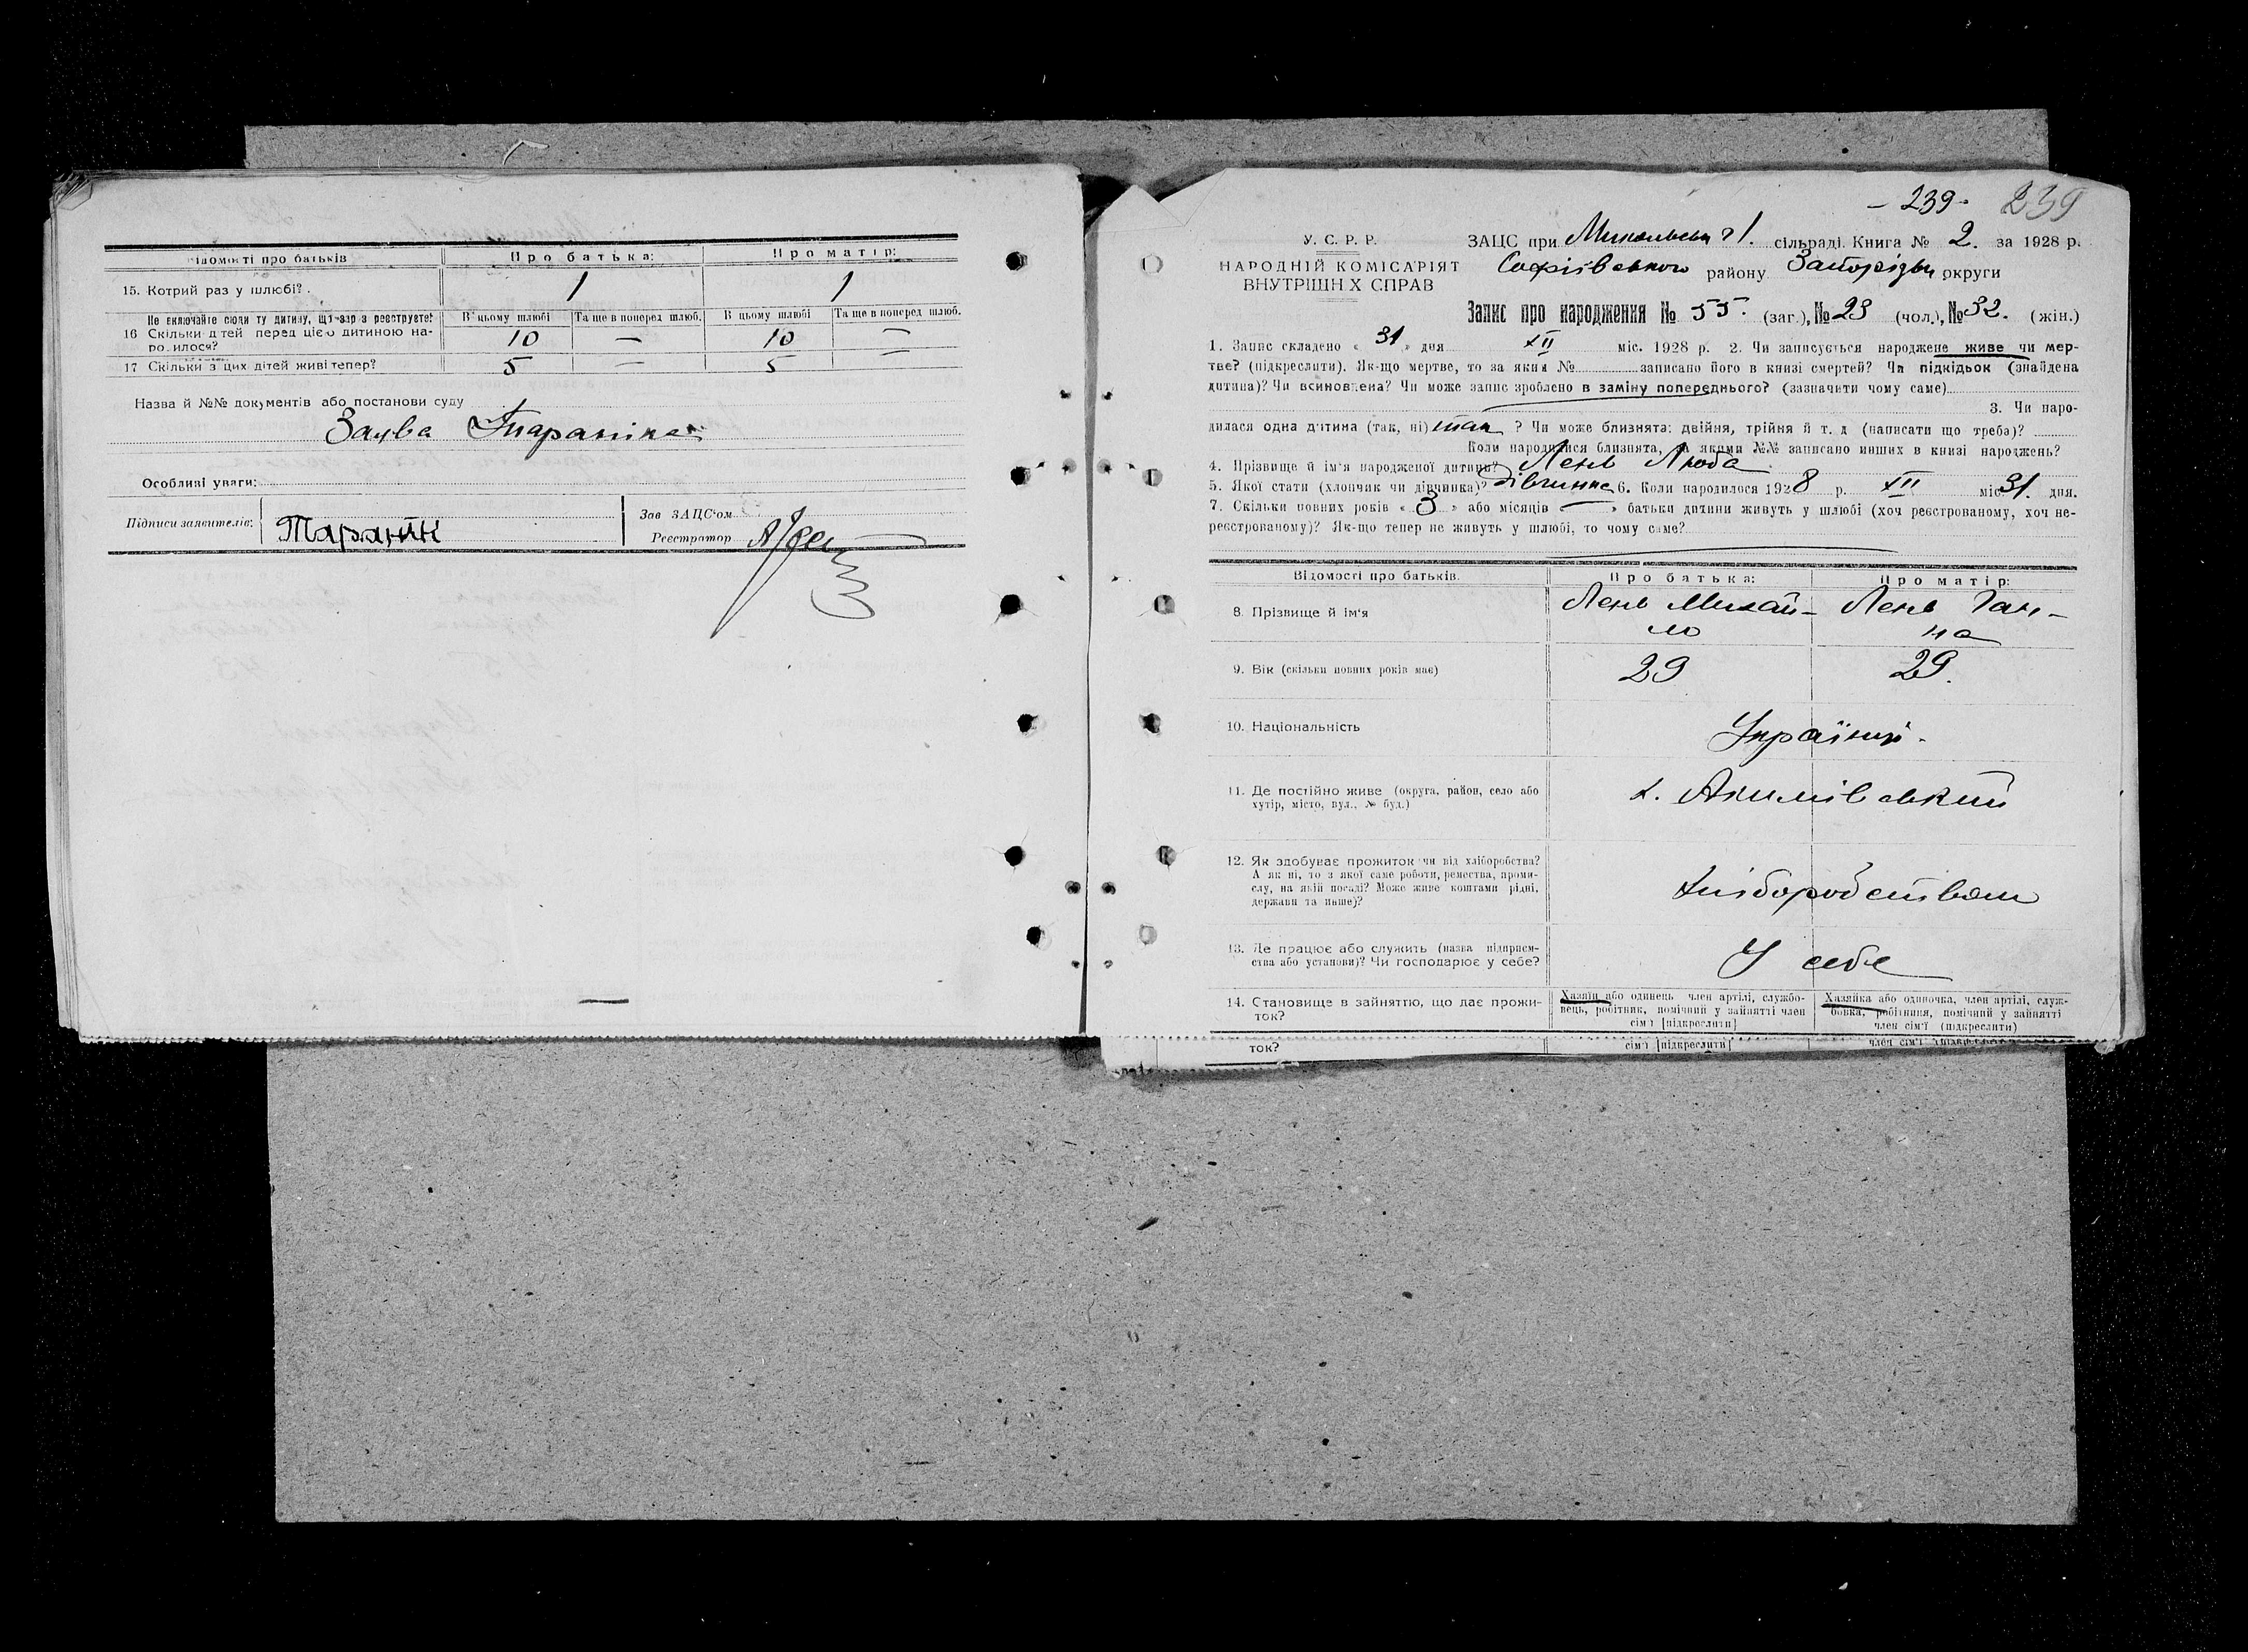 Відомості про батьків
Про батька:
Про матір:
15. Котрий раз у шлюбі?
1
1
Не включайте сюди ту дитину, що зараз реєструєте!
В цьому шлюбі
Та ще в поперед шлюб.
В цьому шлюбі
Та ще в поперед шлюб.
16 Скільки дітей перед цією дитиною на-
родилося?
10
—
10
—
17 Скільки з цих дітей живі тепер?
5
—
5
—
Назва й №№ документів або постанови суду
Заява Тараніна
Особливі уваги:
Підписи заявителів:
Таранін
Зав ЗАЦС'ом
Реєстратор
- 239 - 239
У. С. Р. Р.
НАРОДНІЙ КОМІСАРІЯТ
ВНУТРІШНІХ СПРАВ
ЗАЦС при 1. сільраді. Книга № 2. за 1928 р.
Софіївського району округи
Запис про народження № 55. (заг.), № 23 (чол.), № 32. (жін.)
1. Запис складено « 31 » дня XII міс. 1928 р. 2. Чи записується народжене живе чи мер-
тве? (підкреслити). Як-що мертве, то за яким № записано його в книзі смертей? Чи підкідьок (знайдена
дитина)? Чи всиновлена? Чи може запис зроблено в заміну попереднього? (зазначити чому саме)
3. Чи наро-
дилася одна дитина (так, ні) так ? Чи може близнята: двійня, трійня й т. д (написати що треба)?
Коли народилися близнята, за якими №№ записано инших в книзі народжень?
4. Прізвище й ім'я народженої дитини? Лень Люба
5. Якої стати (хлопчик чи дівчинка)? дівчинка 6. Коли народилося 1928 р. XII міс 31. дня.
7. Скільки повних років « 3 » або місяців « — » батьки дитини живуть у шлюбі (хоч реєстрованому, хоч не-
реєстрованому)? Як-що тепер не живуть у шлюбі, то чому саме?
Відомості про батьків.
Про батька:
Про матір:
8. Прізвище й ім'я
Лень Михай-
ло
Лень Ган-
на
9. Вік (скільки повних років має)
29
29.
10. Національність
Українці.
11. Де постійно живе (округа, район, село або
хутір, місто, вул., № буд.)
х. Якимівський
12. Як здобуває прожиток чи від хліборобства?
А як ні, то з якої саме роботи, ремества, проми-
слу, на якій посаді? Може живе коштами рідні,
держави та инше)?
Хліборобством
13. Де працює або служить (назва підприєм-
ства або установи)? Чи господарює у себе?
У себе
14. Становище в зайняттю, що дає прожи-
ток?
Хазяїн або одинець член артілі, службо-
вець, робітник, помічний у зайнятті член
сім'ї [підкреслити]
Хазяйка або одиночка, член артілі, служ-
бовка, робітниця, помічний у зайнятті
член сім'ї (підкреслити)
ток?
сім'ї [підкреслити]
член сім'ї